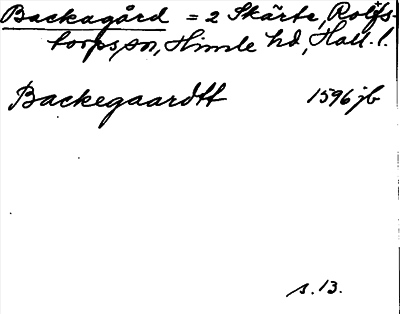 Backagård = 2 Skärte, Rolfs-
torps sn, Himle hd, Hall. l.
Backegaardtt 1596 jb
s. 13.